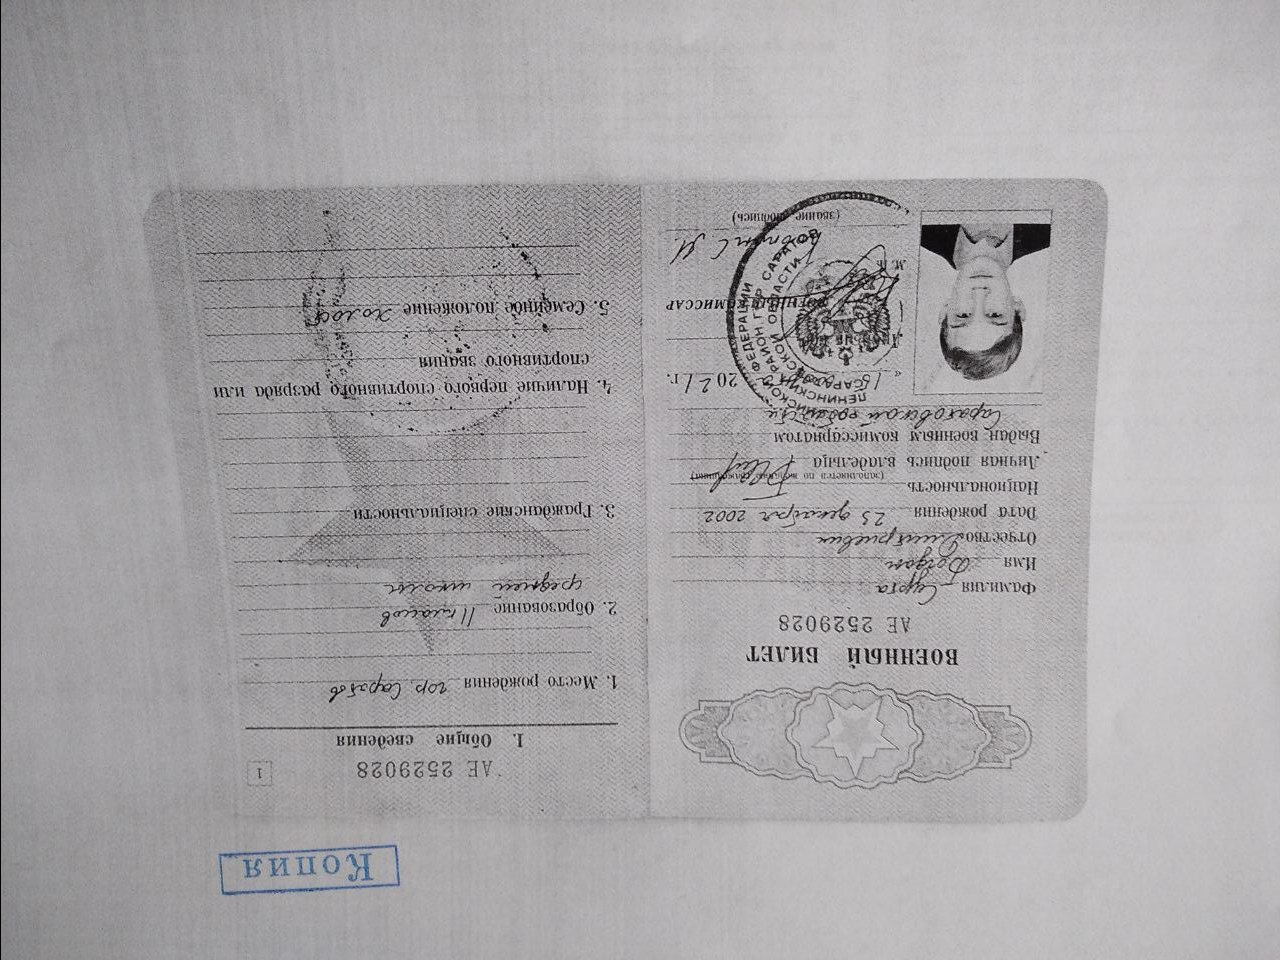 ВОЕННЫЙ БИЛЕТ
АЕ 2529028
Фамилия Сурга
Имя Богдан
Отчество Дмитриевич
Дата рождения 23 декабря 2002
Национальность
(заполняется по желанию гражданина)
Личная подпись владельца
Выдан военным комиссариатом
Саратовской области
2021 г.
ВОЕННЫЙ КОМИССАР
М. П.
(звание, подпись)
ФЕДЕРАЦИИ
ЛЕНИНСКИЙ РАЙОН ГОР. САРАТОВ
САРАТОВСКОЙ ОБЛАСТИ
АЕ 2529028
1
I. Общие сведения
1. Место рождения гор. Саратов
2. Образование 11 классов
средней школы
3. Гражданские специальности
4. Наличие первого спортивного разряда или
спортивного звания
5. Семейное положение холост
Копия